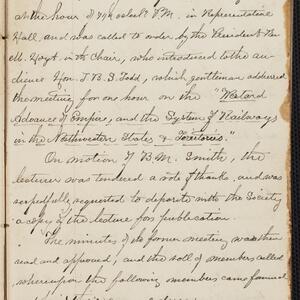 at the hour of 7½ o'clock P.M. in Representative
Hall, and was called to order by the President
Hoyt in the Chair, who introduced to the au-
dience Hon. J. B. S. Todd, which gentleman addressed
the meeting for one hour on the "Westward
Advance of Empire, and the System of Railways
in the Northwestern States & Territories."
On motion of B. M. Smith, the
lecturer was tendered a vote of thanks, and was
respectfully requested to deposite with the Society
a copy of the lecture for publication.
The minutes of the former meeting was then
read and approved, and the roll of members called
whereupon the following members came forward